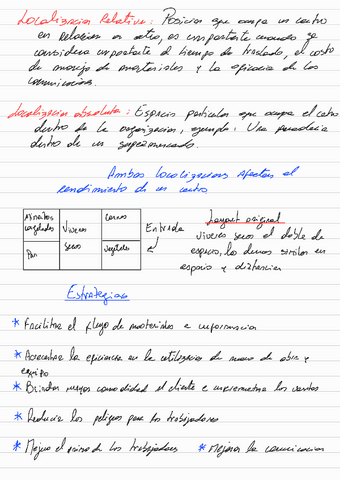 Localización Relativa: Posición que ocupa un centro
en relación a otro, es importante cuando se
considera importante el tiempo de traslado, el costo
de manejo de materiales y la eficacia de las
comunicaciones.
Localización absoluta: Espacio particular que ocupa el centro
dentro de la organización, ejemplo: Una panadería
dentro de un supermercado.
Ambas localizaciones afectan el
rendimiento de un centro
Alimentos congelados Víveres secos Carnes Entrada
Pan Vegetales
Layout original
Víveres secos el doble de
espacio, los demás similes en
espacio y distancias
Estrategias
* Facilitar el flujo de materiales e información
* Acrecentar la eficiencia en la utilización de mano de obra y
equipo
* Brindar mayor comodidad al cliente e incrementar las ventas
* Reducir los peligros para los trabajadores
* Mejora el ánimo de los trabajadores * Mejorar la comunicación